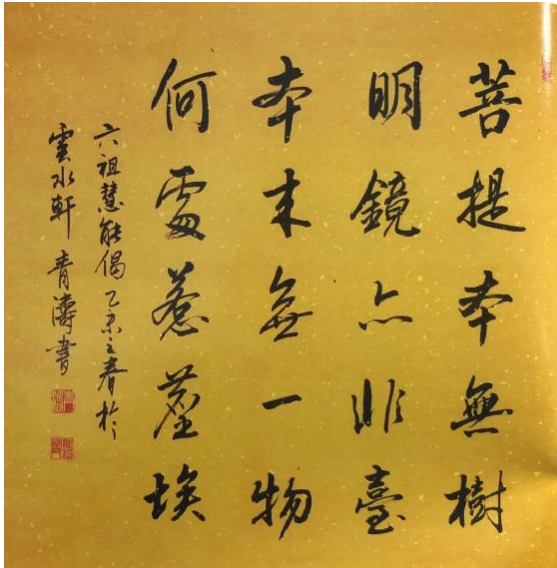 菩提本無樹
明鏡亦非臺
本來無一物
何處惹塵埃
六祖慧能偈乙未之春於
雲水軒 青濤書